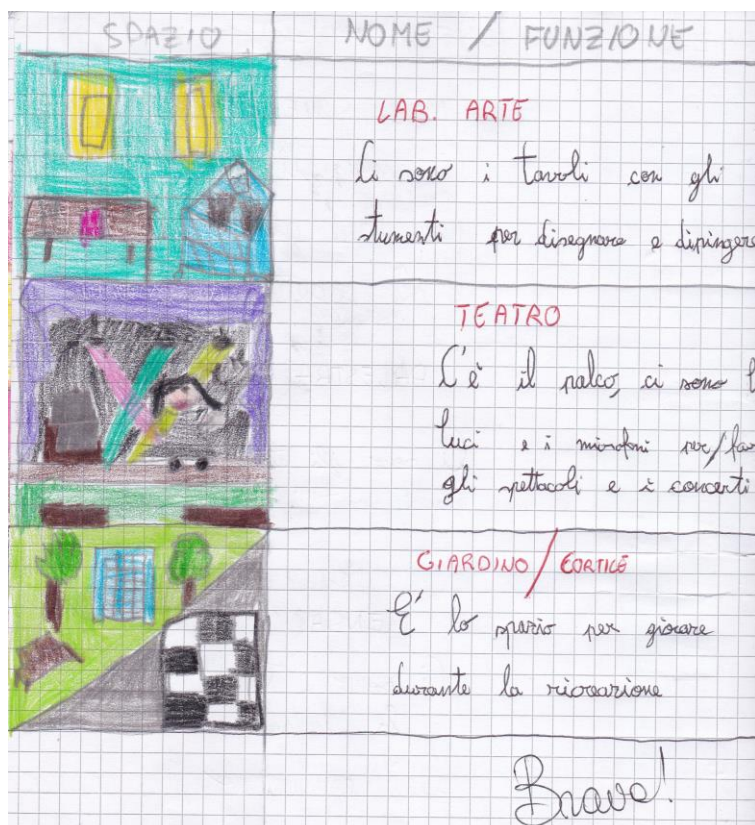 SPAZIO NOME / FUNZIONE
LAB. ARTE
Ci sono i tavoli con gli
stumenti per disegnare e dipingere
TEATRO
C'è il palco, ci sono l
luci e i microfoni per/far
gli spettacoli e i concerti
GIARDINO / CORTILE
É lo spazio per giocare
durante la ricreazione
Brava!